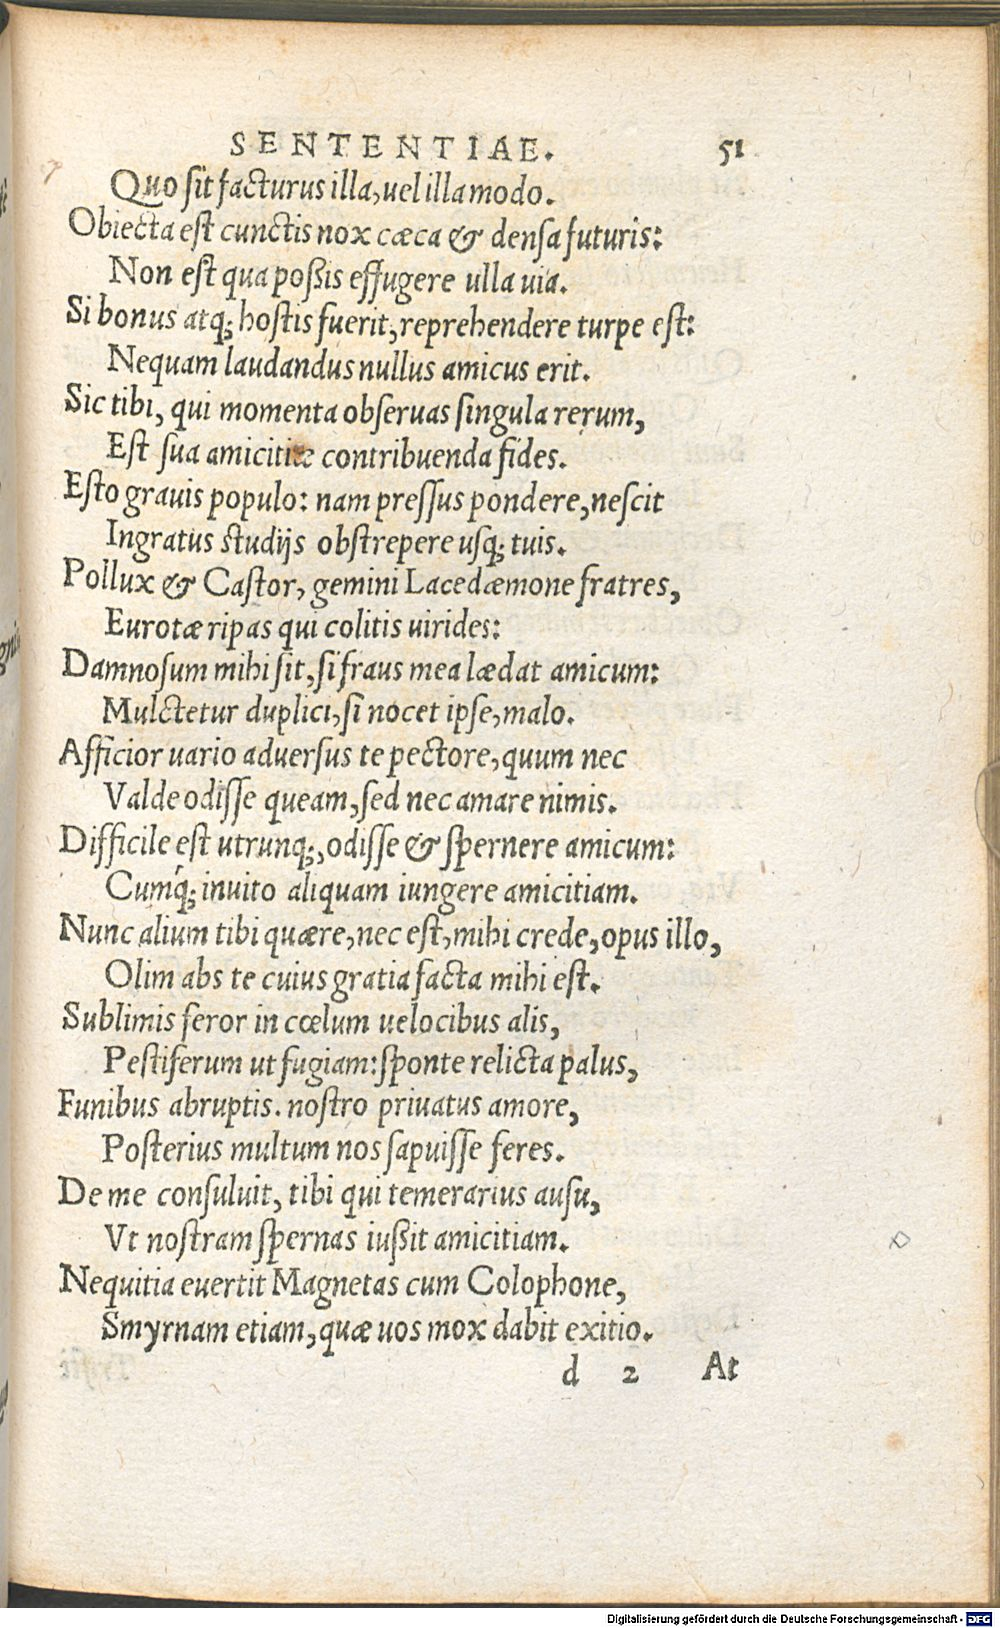 SENTENTIAE. 51
Quo sit facturus illa, uel illa modo.
Obiecta est cunctis nox cæca & densa futuris:
Non est qua poßis effugere ulla uia.
Si bonus atq; hostis fuerit, reprehendere turpe est:
Nequam laudandus nullus amicus erit.
Sic tibi, qui momenta obseruas singula rerum,
Est sua amicitiæ contribuenda fides.
Esto grauis populo: nam pressus pondere, nescit
Ingratus studijs obstrepere usq; tuis.
Pollux & Castor, gemini Lacedæmone fratres,
Eurotæ ripas qui colitis uirides:
Damnosum mihi sit, si fraus mea lædat amicum:
Mulctetur duplici, si nocet ipse, malo.
Afficior uario aduersus te pectore, quum nec
Valde odisse queam, sed nec amare nimis.
Difficile est utrunq;, odisse & spernere amicum:
Cumq́; inuito aliquam iungere amicitiam.
Nunc alium tibi quære, nec est, mihi crede, opus illo,
Olim abs te cuius gratia facta mihi est.
Sublimis feror in cœlum uelocibus alis,
Pestiferum ut fugiam: sponte relicta palus,
Funibus abruptis. nostro priuatus amore,
Posterius multum nos sapuisse feres.
De me consuluit, tibi qui temerarius ausu,
Vt nostram spernas iußit amicitiam.
Nequitia euertit Magnetas cum Colophone,
Smyrnam etiam, quæ uos mox dabit exitio.
d 2 At
Digitalisierung gefördert durch die Deutsche Forschungsgemeinschaft - DFG